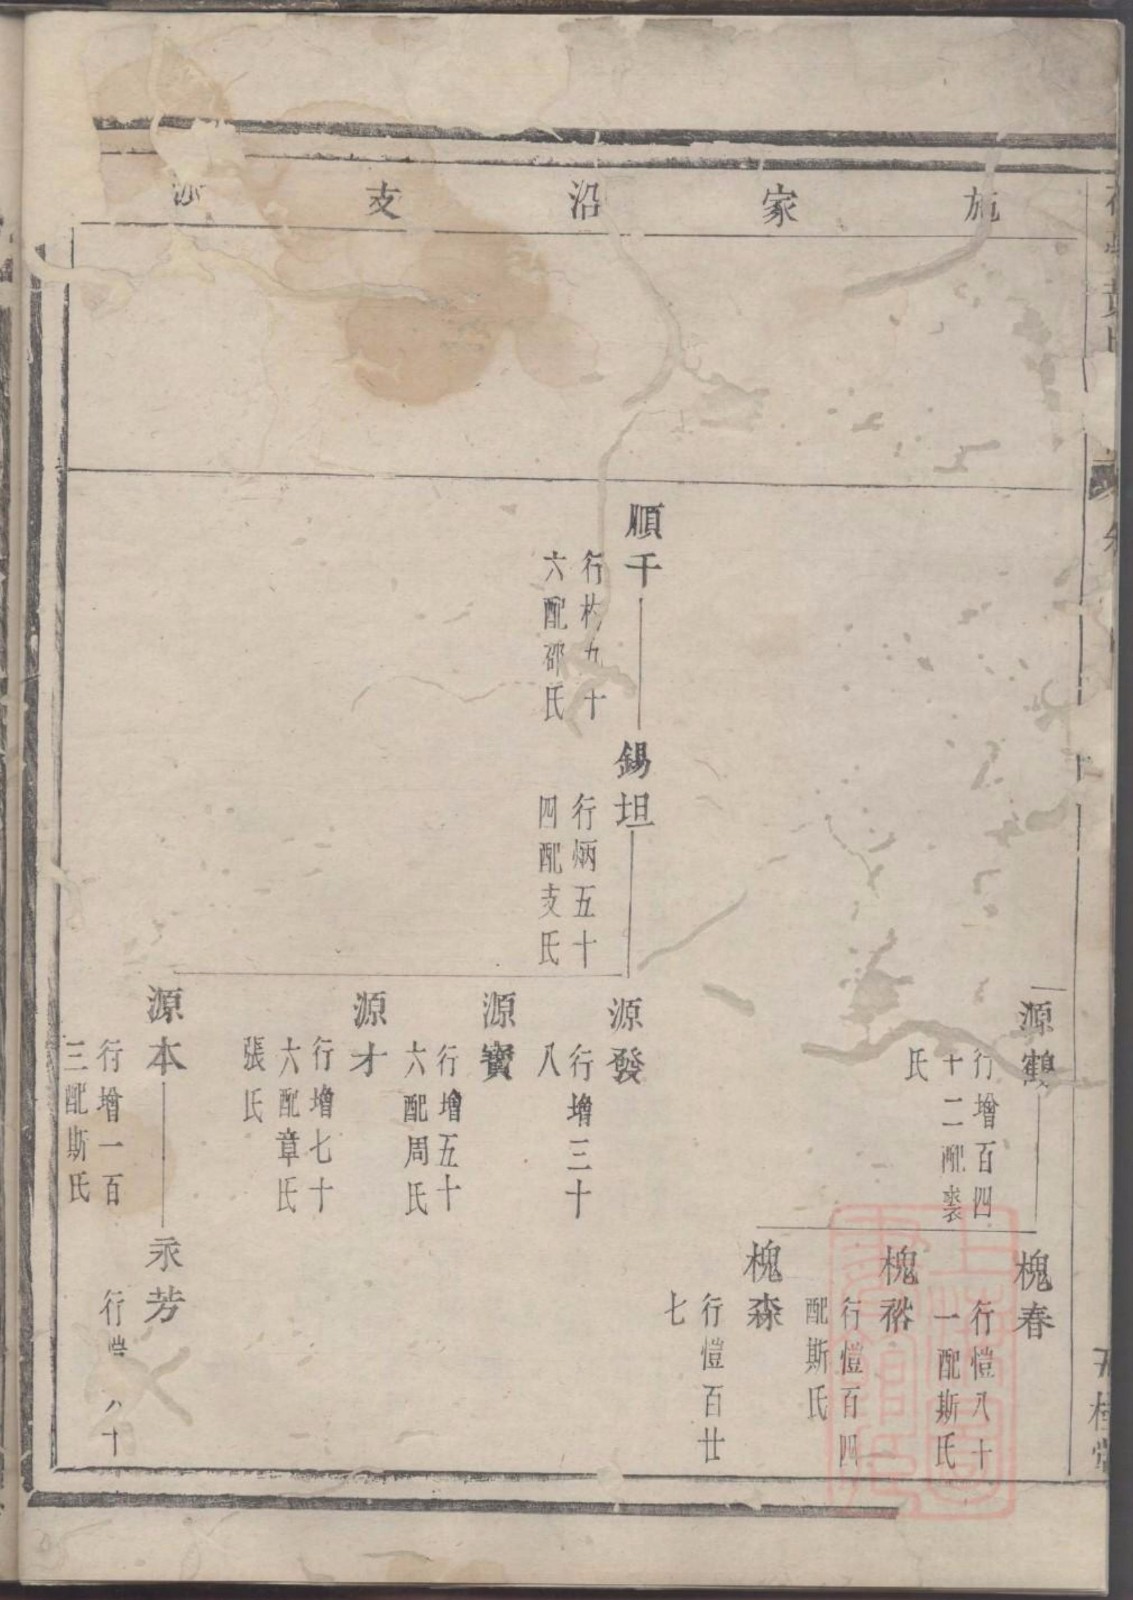 施家沿支
源鶴
行增百四
十二配裘
氏
槐春
行愷八十
一配斯氏
槐裕
行愷百四
配斯氏
槐森
行愷百廿
七
順千
行杓九十
六配邵氏
錫坦
行炳五十
四配支氏
源發
行增三十
八
源寶
行增五十
六配周氏
源才
行增七十
六配章氏
張氏
源本
行增一百
三配斯氏
永芳
行愷八十